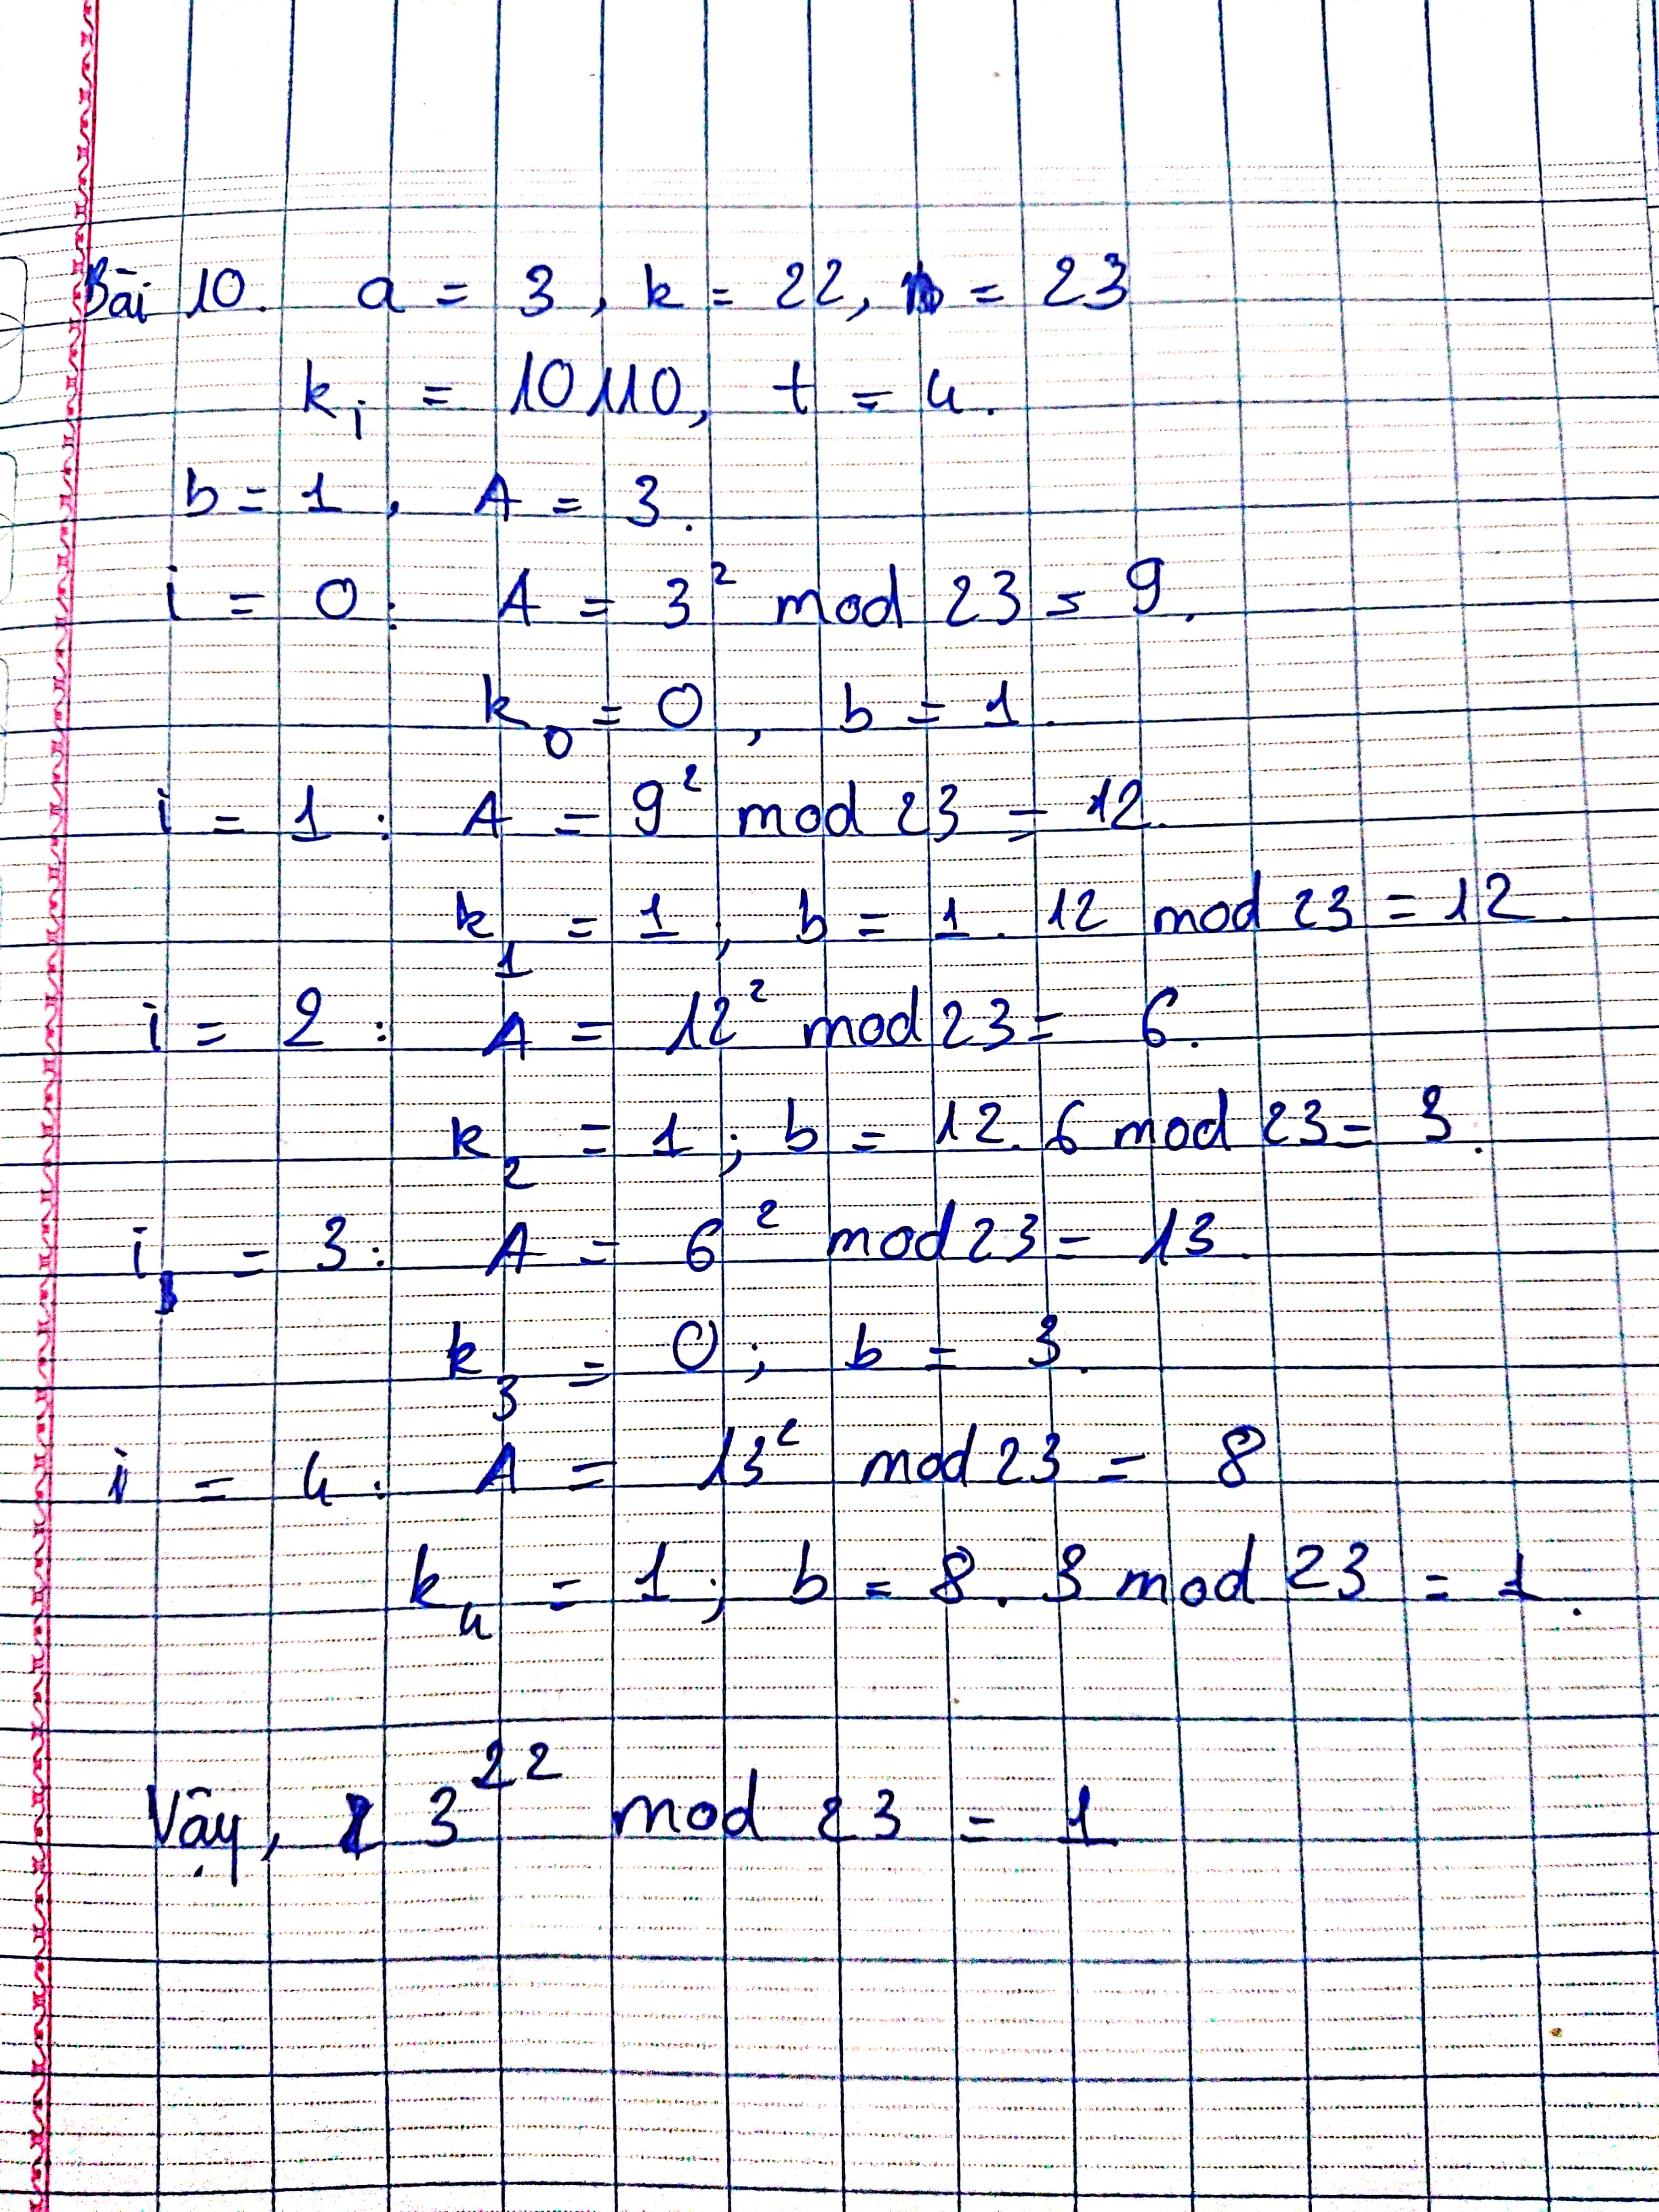 Bài 10. a = 3, k = 22, n = 23
kᵢ = 10110, t = 4.
b = 1, A = 3.
i = 0: A = 3² mod 23 = 9.
k₀ = 0, b = 1.
i = 1: A = 9² mod 23 = 12.
k₁ = 1, b = 1. 12 mod 23 = 12.
i = 2: A = 12² mod 23 = 6.
k₂ = 1; b = 12. 6 mod 23 = 3.
i = 3: A = 6² mod 23 = 13.
k₃ = 0; b = 3.
i = 4: A = 13² mod 23 = 8
k₄ = 1; b = 8. 3 mod 23 = 1.
Vậy, 3²² mod 23 = 1